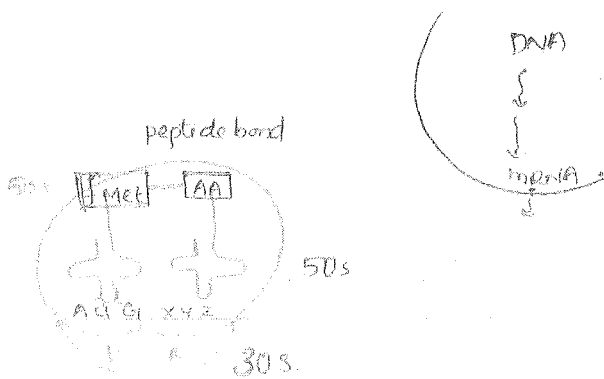 DNA
mRNA
peptide bond
Met AA
50s
X Y Z
30s.